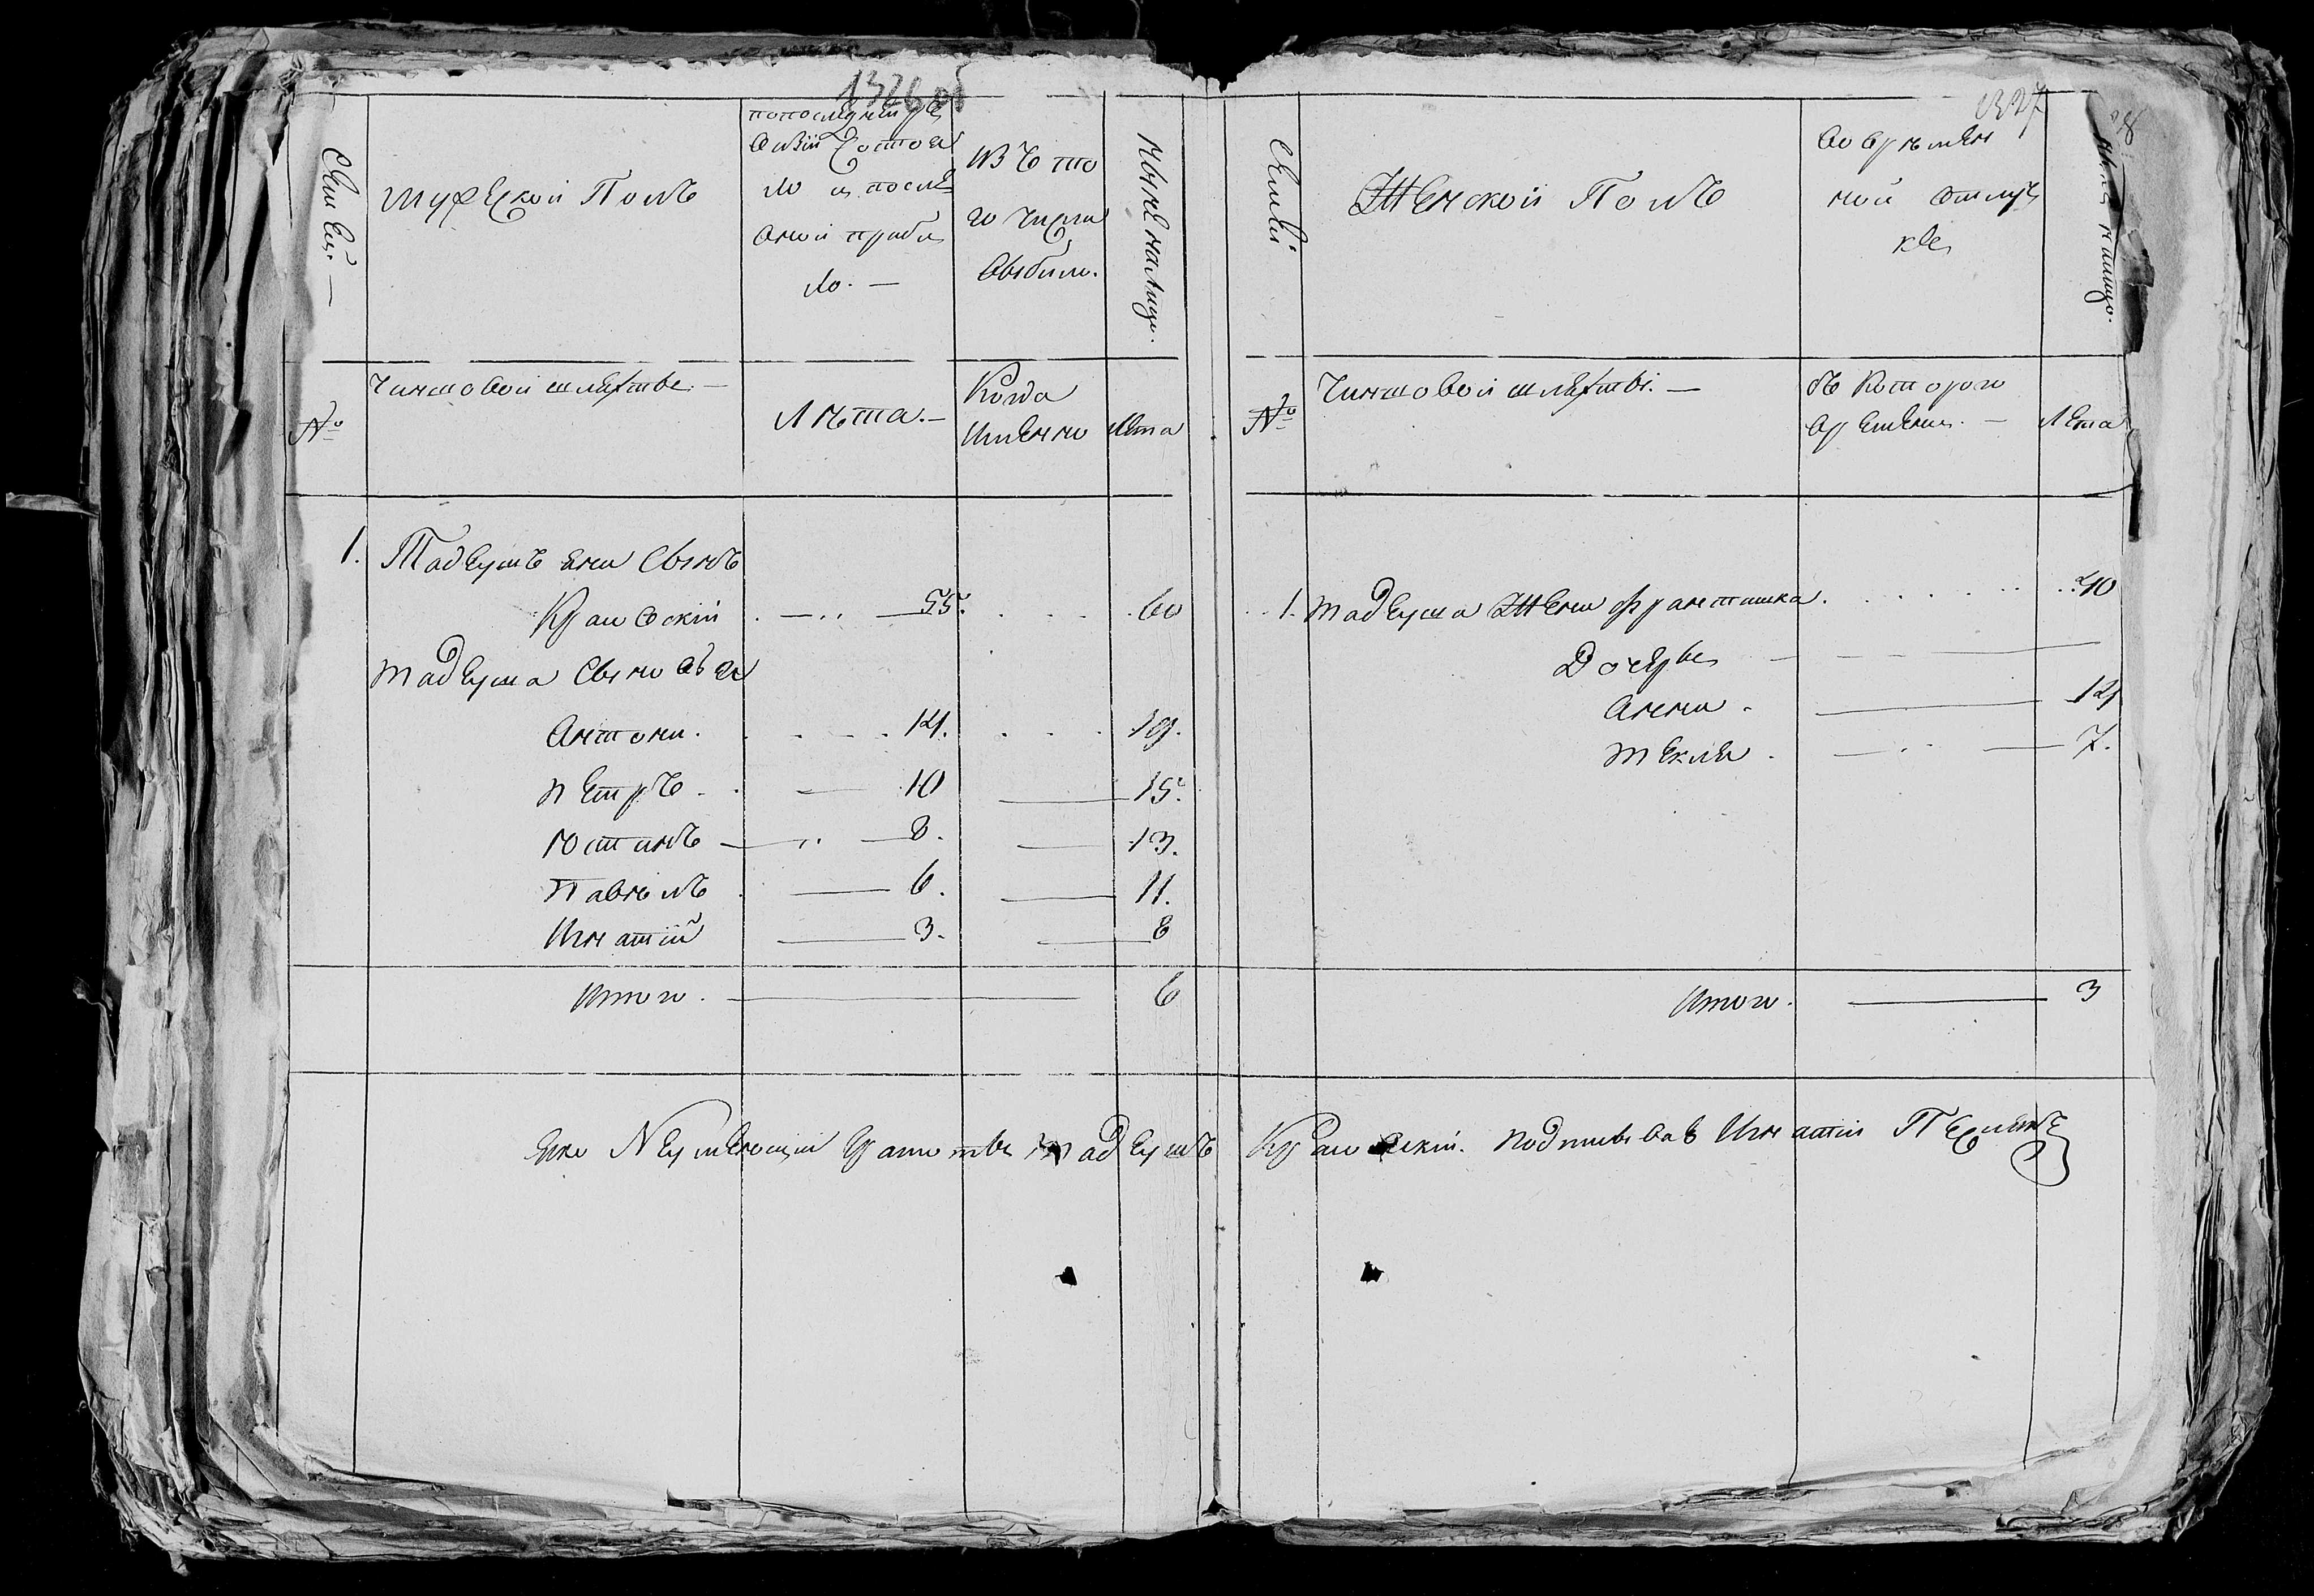 1326 об
Семей.
Мужеской Полъ
попоследней ре
визіи состоя
ло и после
оной прибы
ло. —
изъ то
го числа
выбыло.
Ныне налице.
Чиншовой шляхты. —
№
Лета. —
Когда
именно
Лета
1. Тадеушъ яна сынъ
Краевскій 55. 60
Тадеуша сыновья
Антони. 14. 19.
Петръ 10 15.
Юстинъ 8. 13.
Павелъ 6. 11.
Игнатій 3. 8
Итого. 6
1327
Семьи
Женской Полъ
во времен
ной отлуч
ке
ныне налицо.
Чиншовой шляхты. —
№
съ которого
времени. —
Лета
1. Тадеуша жена Францишка 40
Дочери
Анна. 14
Текля. 7.
Итого. 3
Неумеющій грамоты Тадеушъ Краевскій. Подписавъ Игнатій